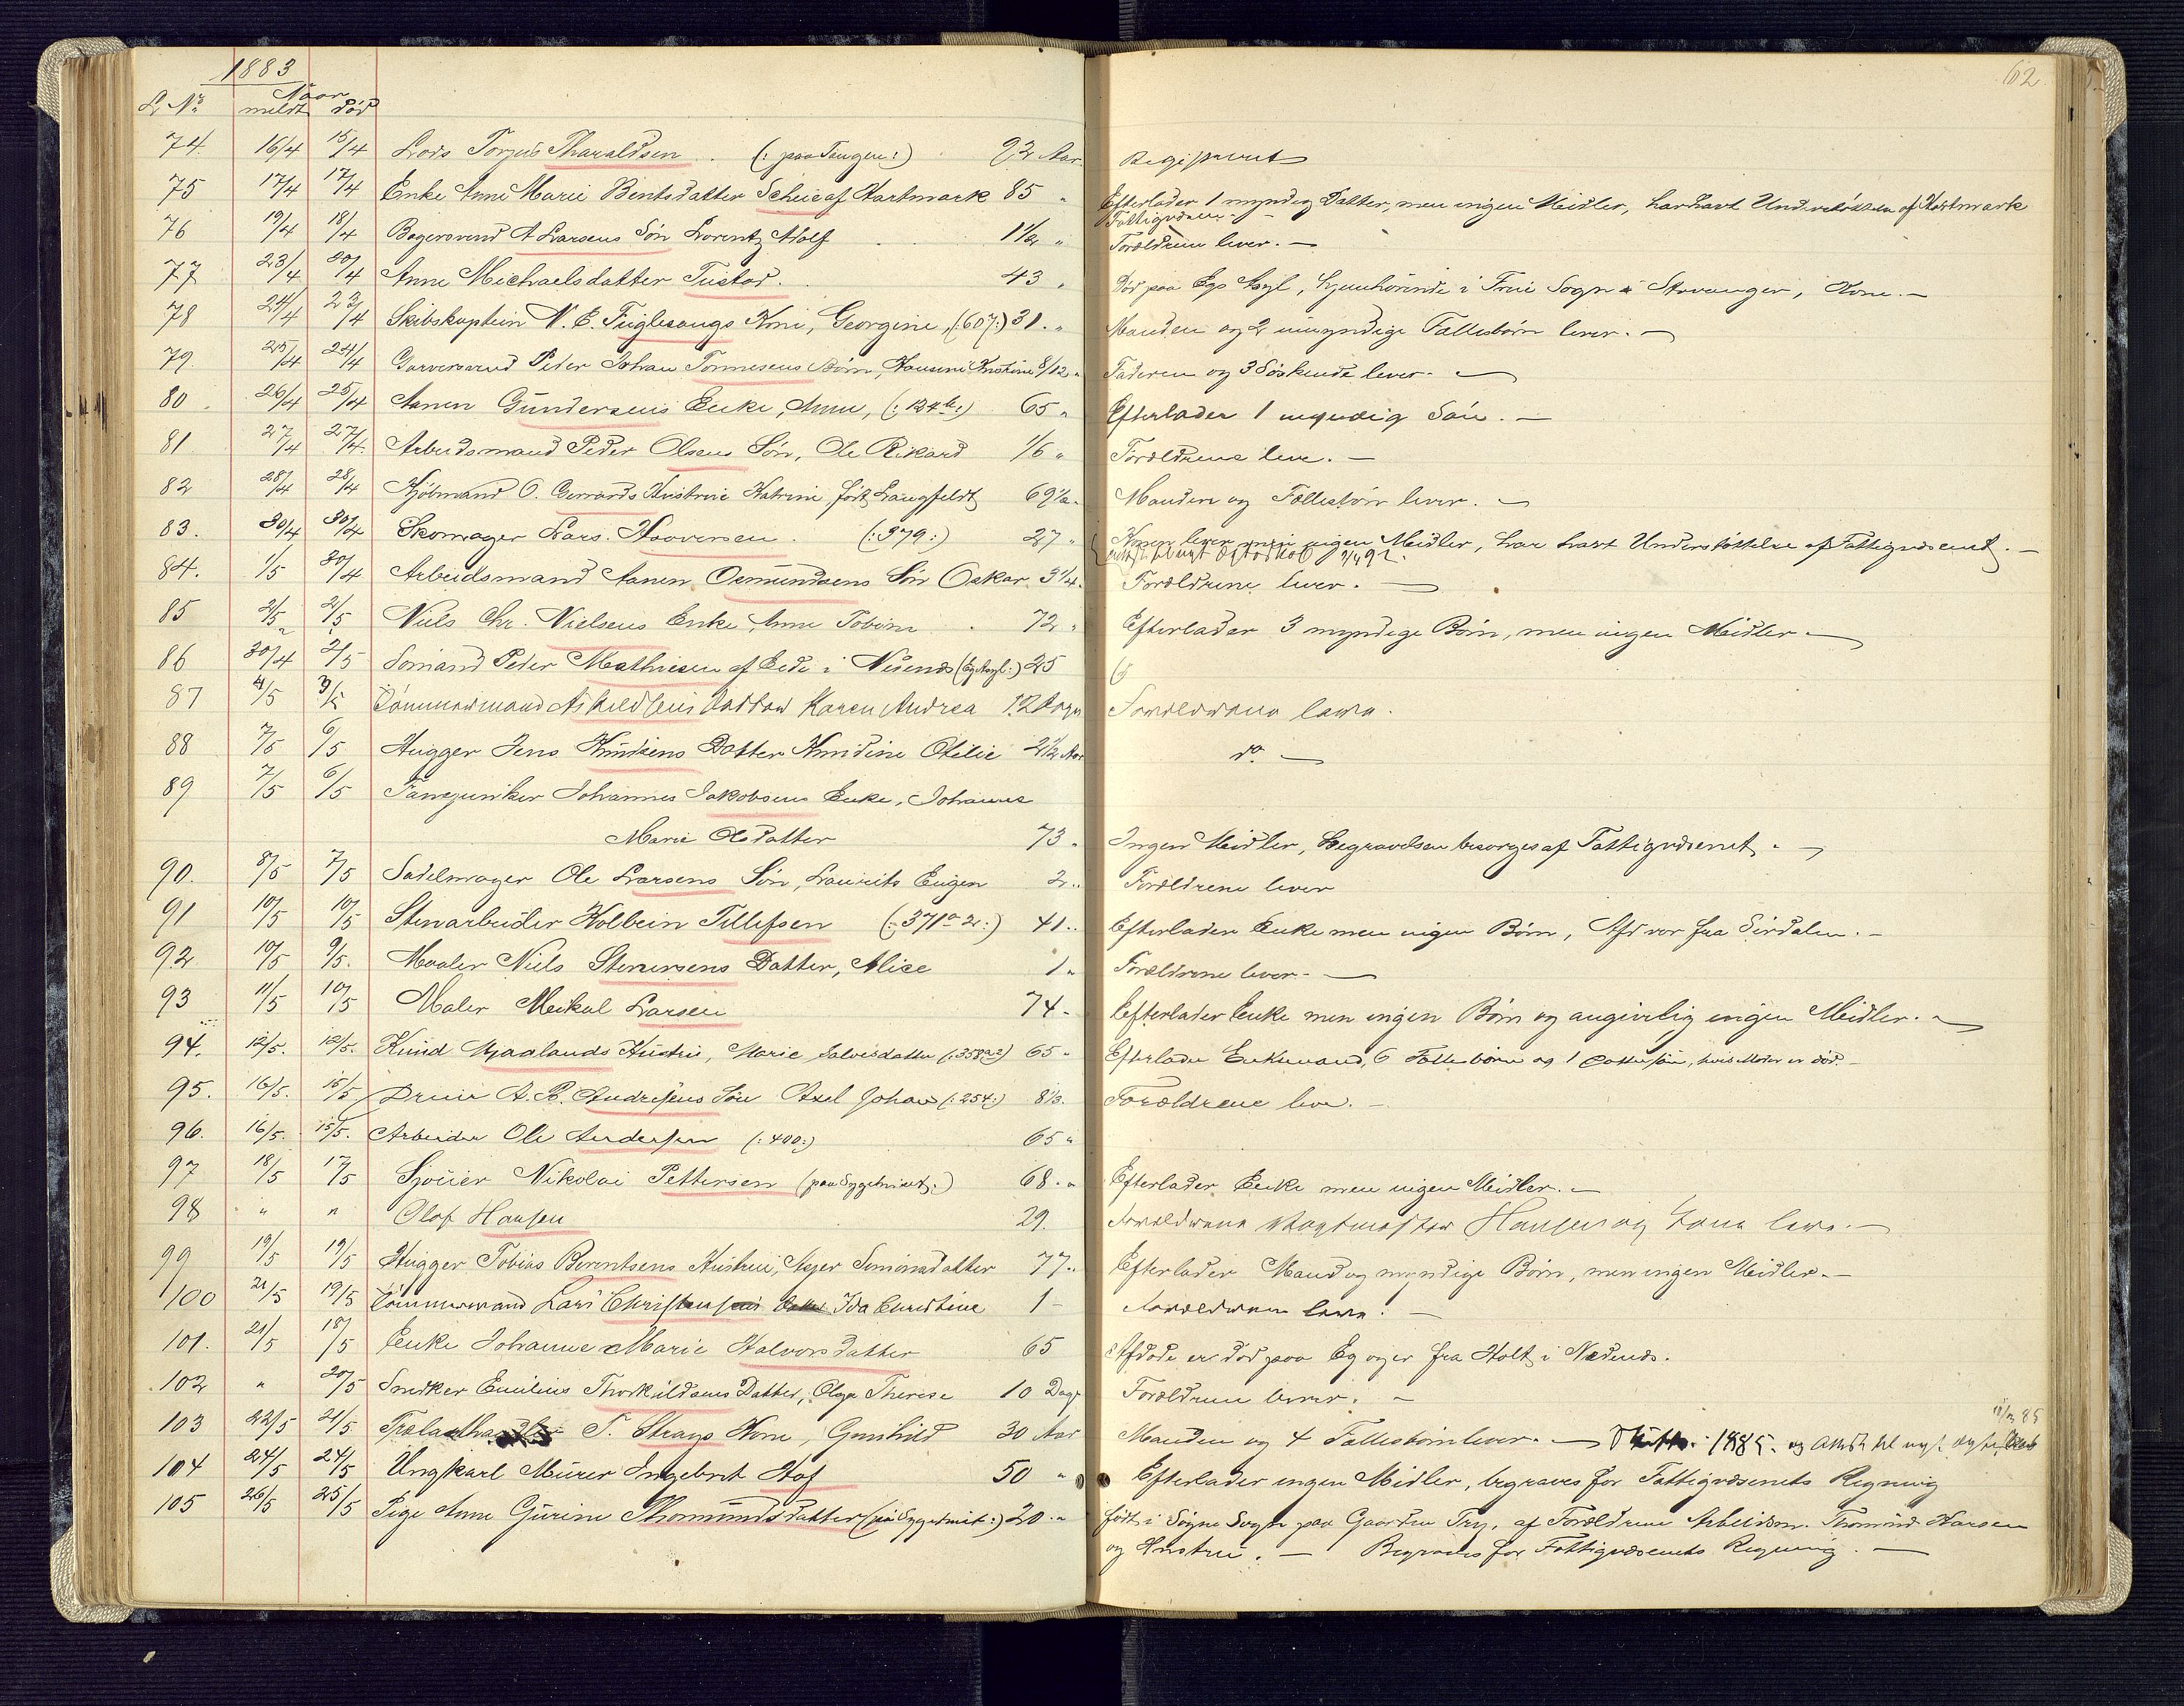 1883
62.
L. No. Naar meldt død
74. 16/4 15/4 Lods Torjus Tharaldsen. (: paa Tangen :) 92 Aar. Registreret
75 17/4 17/4 Enke Anne Marie Bentsdatter Scheie af Hartmark 85 " Efterlader 1 myndig Datter, men ingen Midler, har havt Understøttelse af Hartmark
Fattigvæsen. -
76 19/4 18/4 Bagersvend A Larsens Søn Lorentz Adolf 1 1/2 " Forældrene lever. -
77 23/4 20/4 Anne Michaelsdatter Tustad. 43 " Død paa Egs Asyl, hjemhørende i Frue Sogn i Stavanger, Kone. -
78 24/4 23/4 Skibskaptein N. E. Fuglesangs Kone, Georgine, (: 607 :) 31. " Manden og 2 umyndige Fællesbørn lever. -
79. 25/4 24/4 Garversvend Peder Johan Tønnesens Barn, Hansine Kristine 8/12 " Faderen og 3 Søskende lever. -
80. 26/4 25/4 Aanen Gundersens Enke, Anne, (: 134 b :) 65 " Efterlader 1 myndig Søn. -
81 27/4 27/4. Arbeidsmand Peder Olsens Søn, Ole Rikard 1/6 " Forældrene leve. -
82 28/4 28/4 Kjøbmand O. Gerrards Hustrue Katrine født Langfeldt 69 1/2 " Manden og Fællesbørn lever. -
83. 30/4 30/4 Skomager Lars Haaversen. (: 379 :) 27 " Konen lever men ingen Midler, har havt Understøttelse af Fattigvæsenet. -
84. 1/5 30/4 Arbeidsmand Aanen Osmundsens Søn Oskar 3 1/4. Forældrene lever. -
85 2/5 2/5 Niels Chr. Nielsens Enke, Anne Tobine 72 " Efterlader 3 myndige Børn, men ingen Midler -
86 30/4 2/5 Sømand Peder Mathiesen af Eide i Nedenæs (Eg Asyl :) 25
87 4/5 3/5 Tømmermand Askildsens Datter Karen Andrea 12 Dage Forældrene leve.
88 7/5 6/5 Hugger Jens Knudsens Datter Knudine Otilie 2 1/2 Aar do. -
89 7/5 6/5 Tamzuniker Johannes Jakobsens Enke, Johanne
Marie Olsdatter 73 " Ingen Midler, Begravelsen besørges af Fattigvæsenet. -
90. 8/5 7/5 Sadelmager Ole Larsens Søn, Lauritz Eugen 2. " Forældrene lever
91 10/5 10/5 Stenarbeider Kolbein Tellefsen (: 371 a 2 :) 41. " Efterlader Enke men ingen Børn, Afd var fra Sirdalen. -
92 10/5 9/5. Maaler Niels Stenersens Datter, Alice 1 " Forældrene lever. -
93 11/5 10/5 Maler Meikal Larsen 74 " Efterlader Enke men ingen Børn og angivelig ingen Midler. -
94. 12/5. 12/5. Knud Mjaalands Hustru, Marie Salvesdatter (: 358 a 2) 65 " Efterlader Enkemand, 6 Fællesbørn og 1 Dattersøn, hvis Moder er død. -
95. 16/5. 15/5 A. B. Andresens Søn Axel Johan (: 254 :) 8 1/3. Forældrene leve. -
96. 16/5. 15/5. Arbeider Ole Andersen (: 400 :) 65 "
97 18/5 17/5 Sjouer Nikolai Pettersen (paa Sygehuset :) 68. " Efterlader Enke men ingen Midler. -
98 " " Olaf Hansen 29. Forældrene Vagtmester Hansen og Kone leve. -
99 19/5 19/5 Hugger Tobias Berentsens Hustrue, Asjer Simonsdatter 77. " Efterlader Mand og myndige Børn, men ingen Midler. -
100 21/5 19/5 Tømmermand Lars Christensens Datter Ida Christine 1 - Forældrene leve. -
101. 21/5 18/5 Enke Johanne Marie Halvorsdatter 65 Afdøde er død paa Eg og er fra Holt i Nedenæs.
102 " 20/5 Snedker Emilius Thorkildsens Datter, Olga Therese 10 Dage Forældrene lever. -
103 22/5 21/5. Trælasthandler T. Strays Kone, Gunhild 30 Aar Manden og 4 Fællesbørn lever. - 1885.
104 24/5 24/5 Ungkarl Murer Ingebret Hof 50 " Efterlader ingen Midler, begraves for Fattigvæsenets Regning
105 26/5. 25/5 Pige Anne Gurine Thomundsdatter (paa Sygehuset :) 20. " født i Søgne Sogn paa Gaarden Try, af Forældrene Arbeidsm. Thomund Hansen
og Hustru. - Begraves for Fattigvæsenets Regning. -